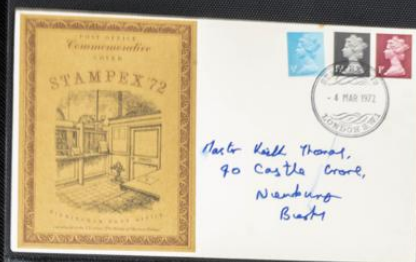 POST OFFICE
Commemorative
COVER
STAMPEX '72
BIRMINGHAM POST OFFICE
- 4 MAR 1972
LONDON S.W.1
Master Keith Thomas,
90 Castle Grove,
Newbury
Berks